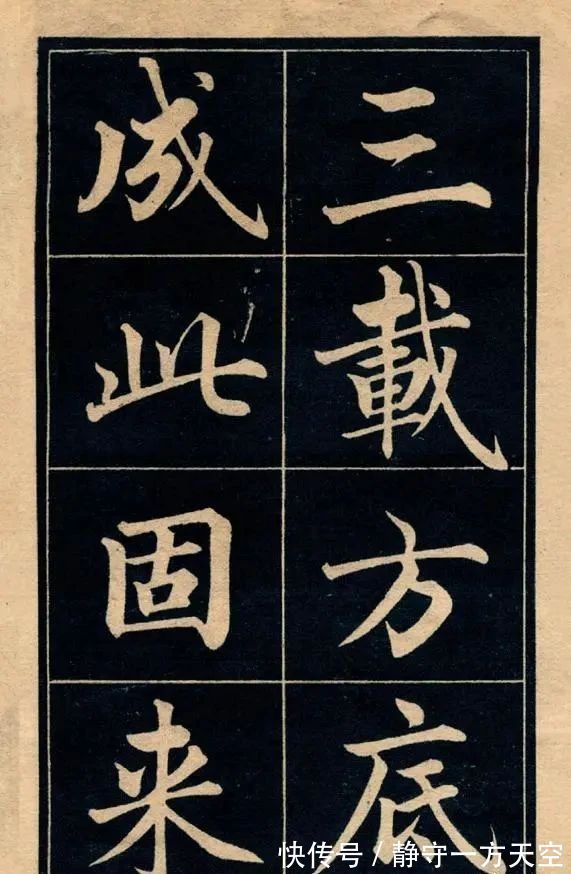 三載方底
成此固来
快传号 / 静守一方天空